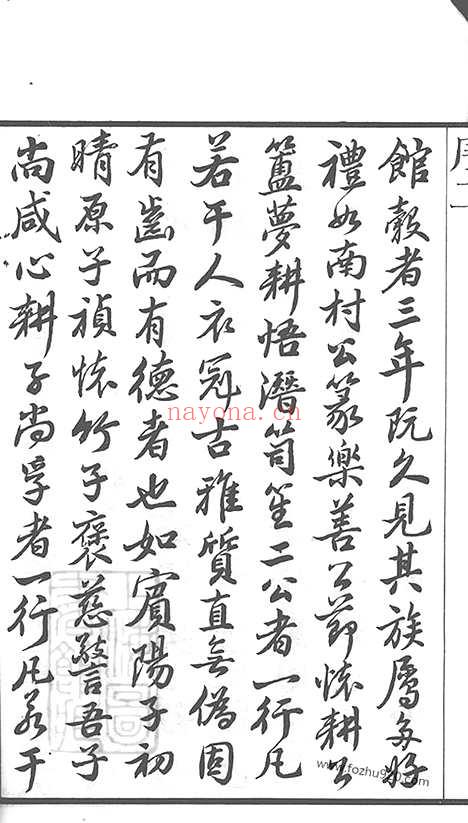 館穀者三年既久見其族屬多好
禮如南村公篆樂善公節懷耕公
簠夢耕悟潛筍笙二公者一行凡
若干人衣冠古雅質直無偽固
有齒而有德者也如賓陽子初
晴原子禎懷竹子褒慈警吾子
尚咸心耕子尚孚者一行凡若干
nayona.cn
www.fozhu920.com